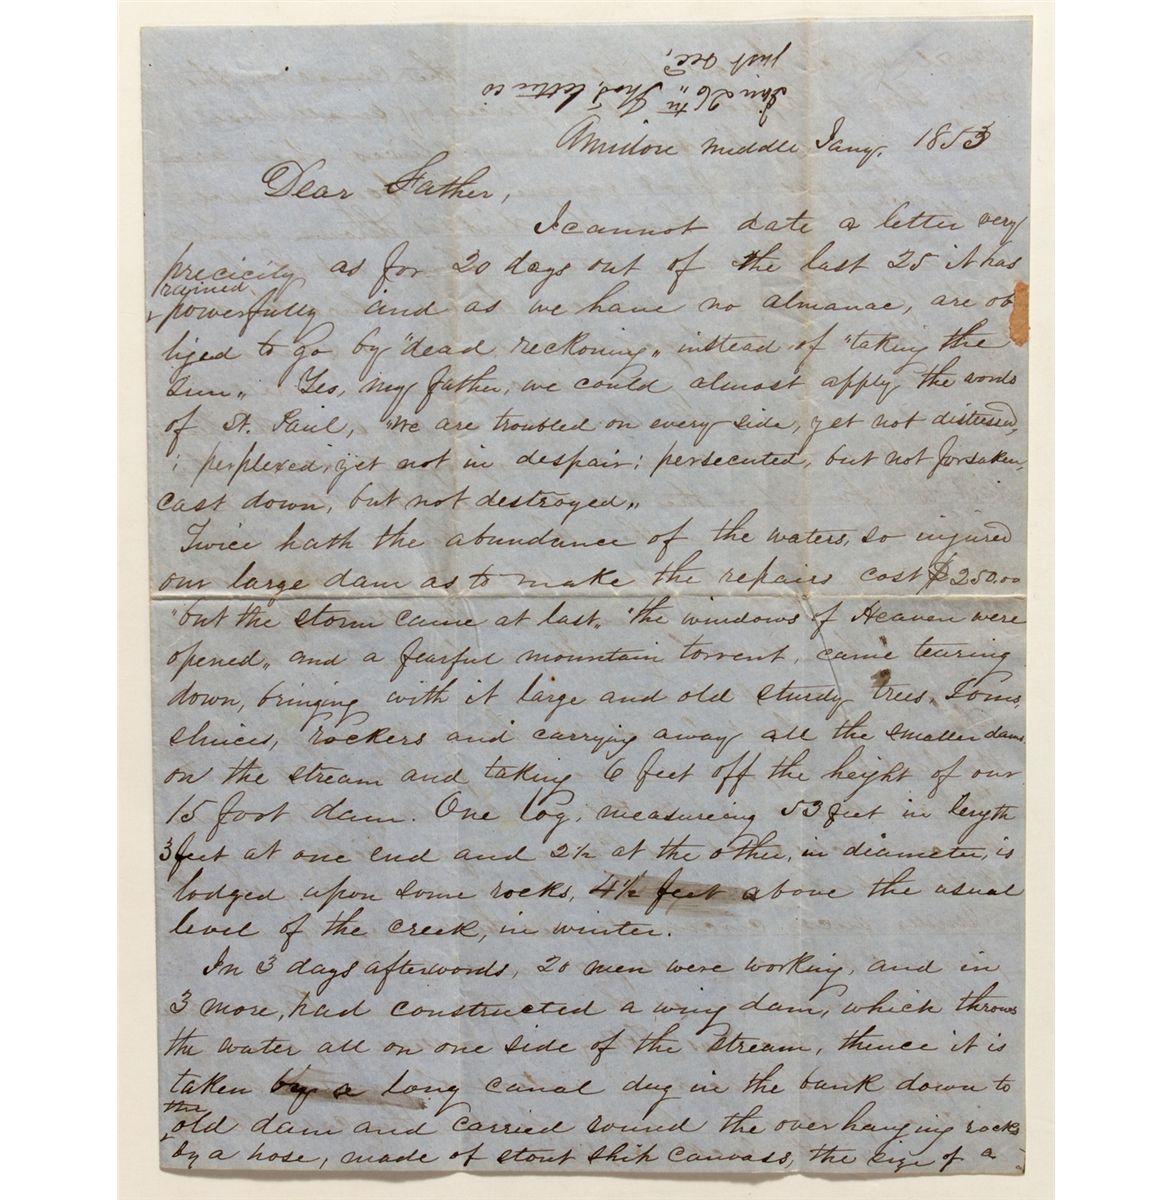 26th Tho's letter is
just rec'd
middle Jany. 1853
Dear Father,
I cannot date a letter very
precicity as for 20 days out of the last 25 it has
rained
powerfully and as we have no almanac, are ob
liged to go by "dead reckoning„ instead of "taking the
Sun„ Yes, my father, we could almost apply the words
of St. Paul, "We are troubled on every side, yet not distressed,
; perplexed, yet not in despair; persecuted, but not forsaken,
cast down, but not destroyed„
Twice hath the abundance of the waters, so injured
our large dam as to make the repairs cost $250.00
"but the storm came at last„ "the windows of Heaven were
opened„ and a fearful mountain torrent, came tearing
down, bringing with it large and old sturdy trees, Toms,
sluices, rockers and carrying away all the smaller dams
on the stream and taking 6 feet off the height of our
15 foot dam. One log, measureing 53 feet in length
3 feet at one end and 2½ at the other, in diameter, is
lodged upon some rocks, 4½ feet above the usual
level of the creek, in winter.
In 3 days afterwords, 20 men were working, and in
3 more, had constructed a wing dam, which throws
the water all on one side of the stream, thence it is
taken by a long canal dug in the bank down to
the
old dam and carried round the over hanging rocks
by a hose, made of stout ship canvass, the size of a